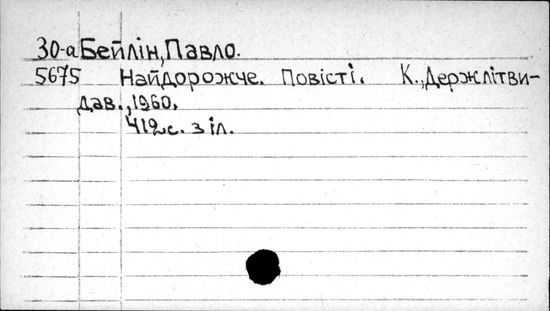 30-а Бейлін, Павло.
5675 Найдорожче. Повісті. К., Держлітви-
дав., 1960.
412 с. з іл.